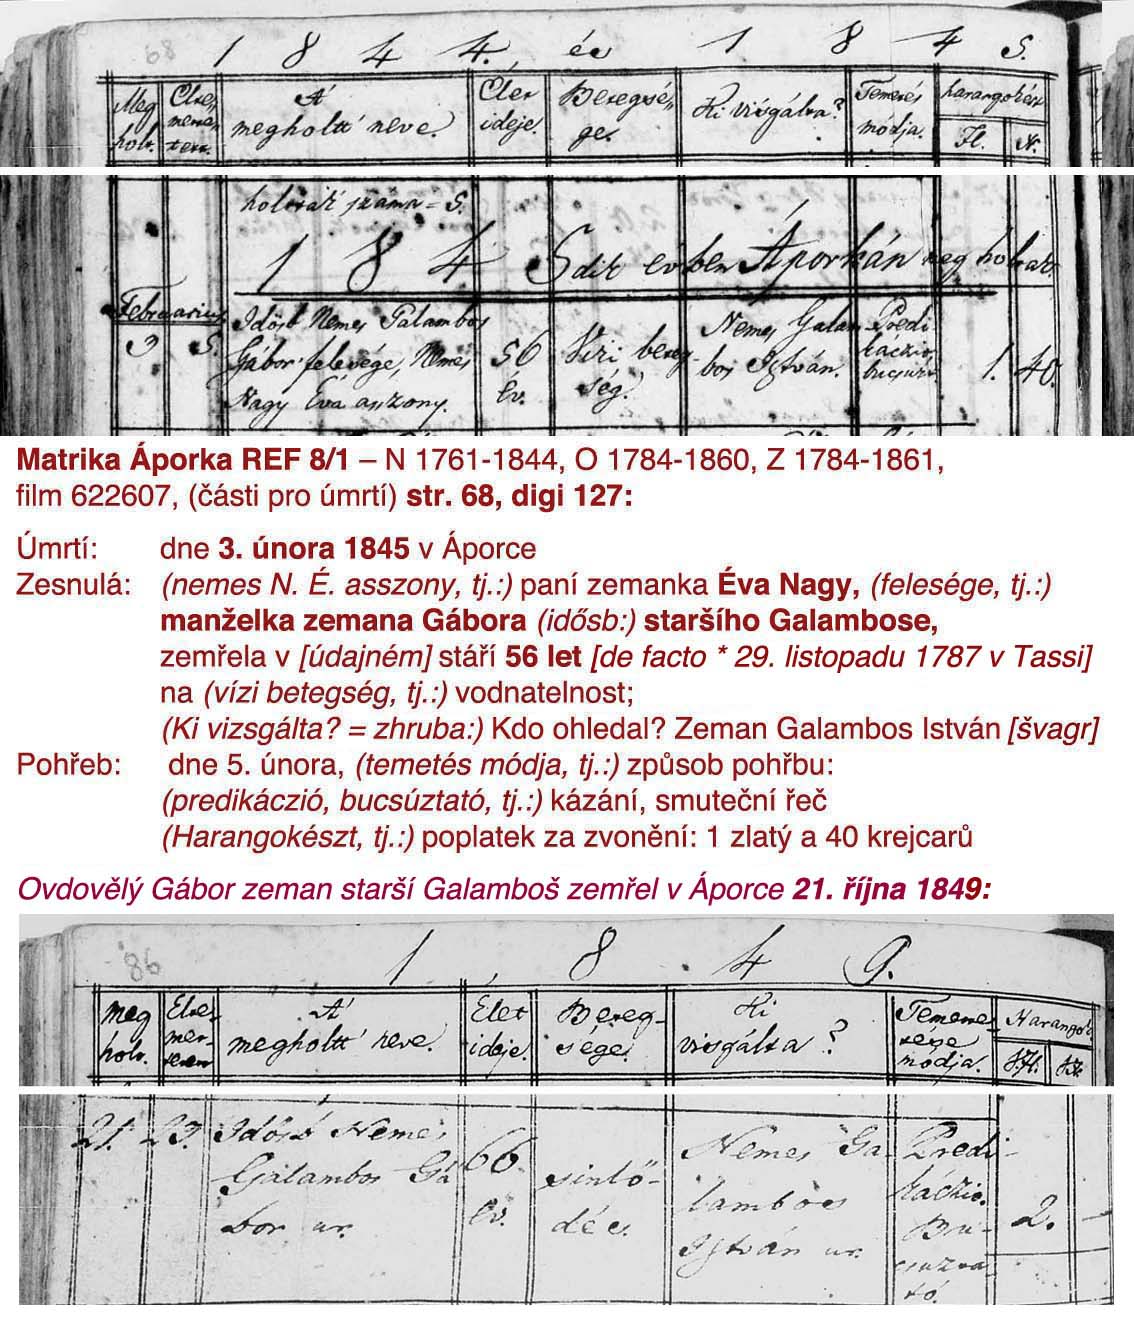 68
1 8 4 4. év 1 8 4 5.
Meg Elte- A' Élet Betegsé- Ki visgálta? Temetés harangozás
holt. mette- megholtt neve. ideje. ge. módja. Ft. K.
holtak száma = 5.
1 8 4 5dik évben Áporkán meg holtak
Februarius Idősb Nemes Galambos Nemes Galam- Predi-
3 5. Gábor felesége, Nemes 56 Vizi beteg- bos István. káczio, 1. 40.
Nagy Éva aszszony. év. ség. bucsuzt.
Matrika Áporka REF 8/1 – N 1761-1844, O 1784-1860, Z 1784-1861,
film 622607, (části pro úmrtí) str. 68, digi 127:
Úmrtí: dne 3. února 1845 v Áporce
Zesnulá: (nemes N. É. asszony, tj.:) paní zemanka Éva Nagy, (felesége, tj.:)
manželka zemana Gábora (idősb:) staršího Galambose,
zemřela v [údajném] stáří 56 let [de facto * 29. listopadu 1787 v Tassi]
na (vízi betegség, tj.:) vodnatelnost;
(Ki vizsgálta? = zhruba:) Kdo ohledal? Zeman Galambos István [švagr]
Pohřeb: dne 5. února, (temetés módja, tj.:) způsob pohřbu:
(predikáczió, bucsúztató, tj.:) kázání, smuteční řeč
(Harangokészt, tj.:) poplatek za zvonění: 1 zlatý a 40 krejcarů
Ovdovělý Gábor zeman starší Galamboš zemřel v Áporce 21. října 1849:
86
1 8 4 9.
meg Elte- A' Élet Beteg- Ki Temete-
holt. met- megholtt neve. ideje. sége. visgálta? módja.
21. 23. Idősb Nemes 66 Nemes Ga- Predi-
Galambos Gá- sinlő- lambos káczio. 2. –
bor ur. év. dés. István ur. Bu-
csuzta-
tó.